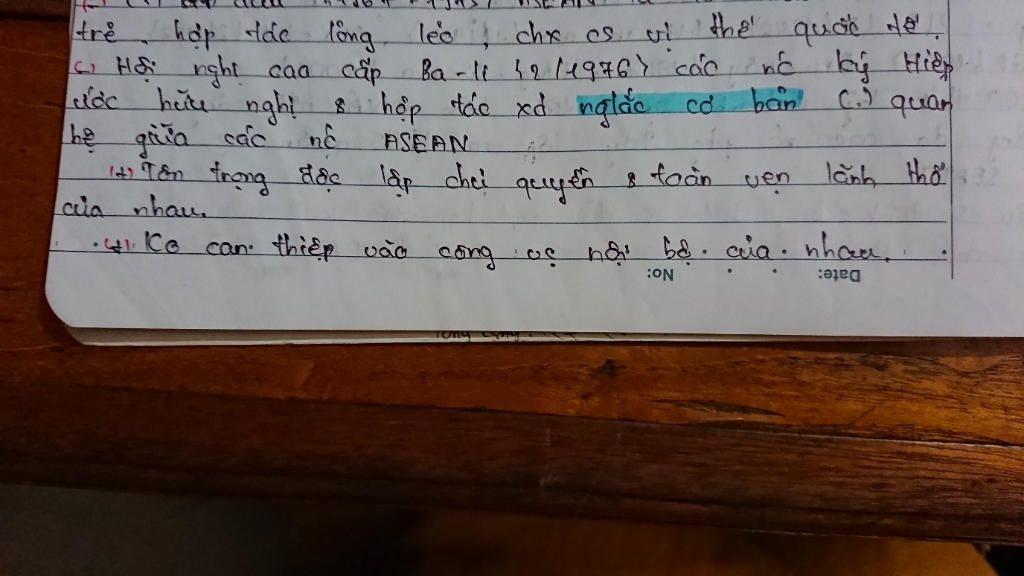 trẻ, hợp tác lỏng lẻo, chx cs vị thế quốc tế.
c) Hội nghị cao cấp Ba-li {2/1976} các nc ký Hiệp
ước hữu nghị & hợp tác xd ngtắc cơ bản (.) quan
hệ giữa các nc ASEAN
(+) Tôn trọng độc lập chủ quyền & toàn vẹn lãnh thổ
của nhau.
(+) Ko can thiệp vào công vc nội bộ của nhau.
No: Date: